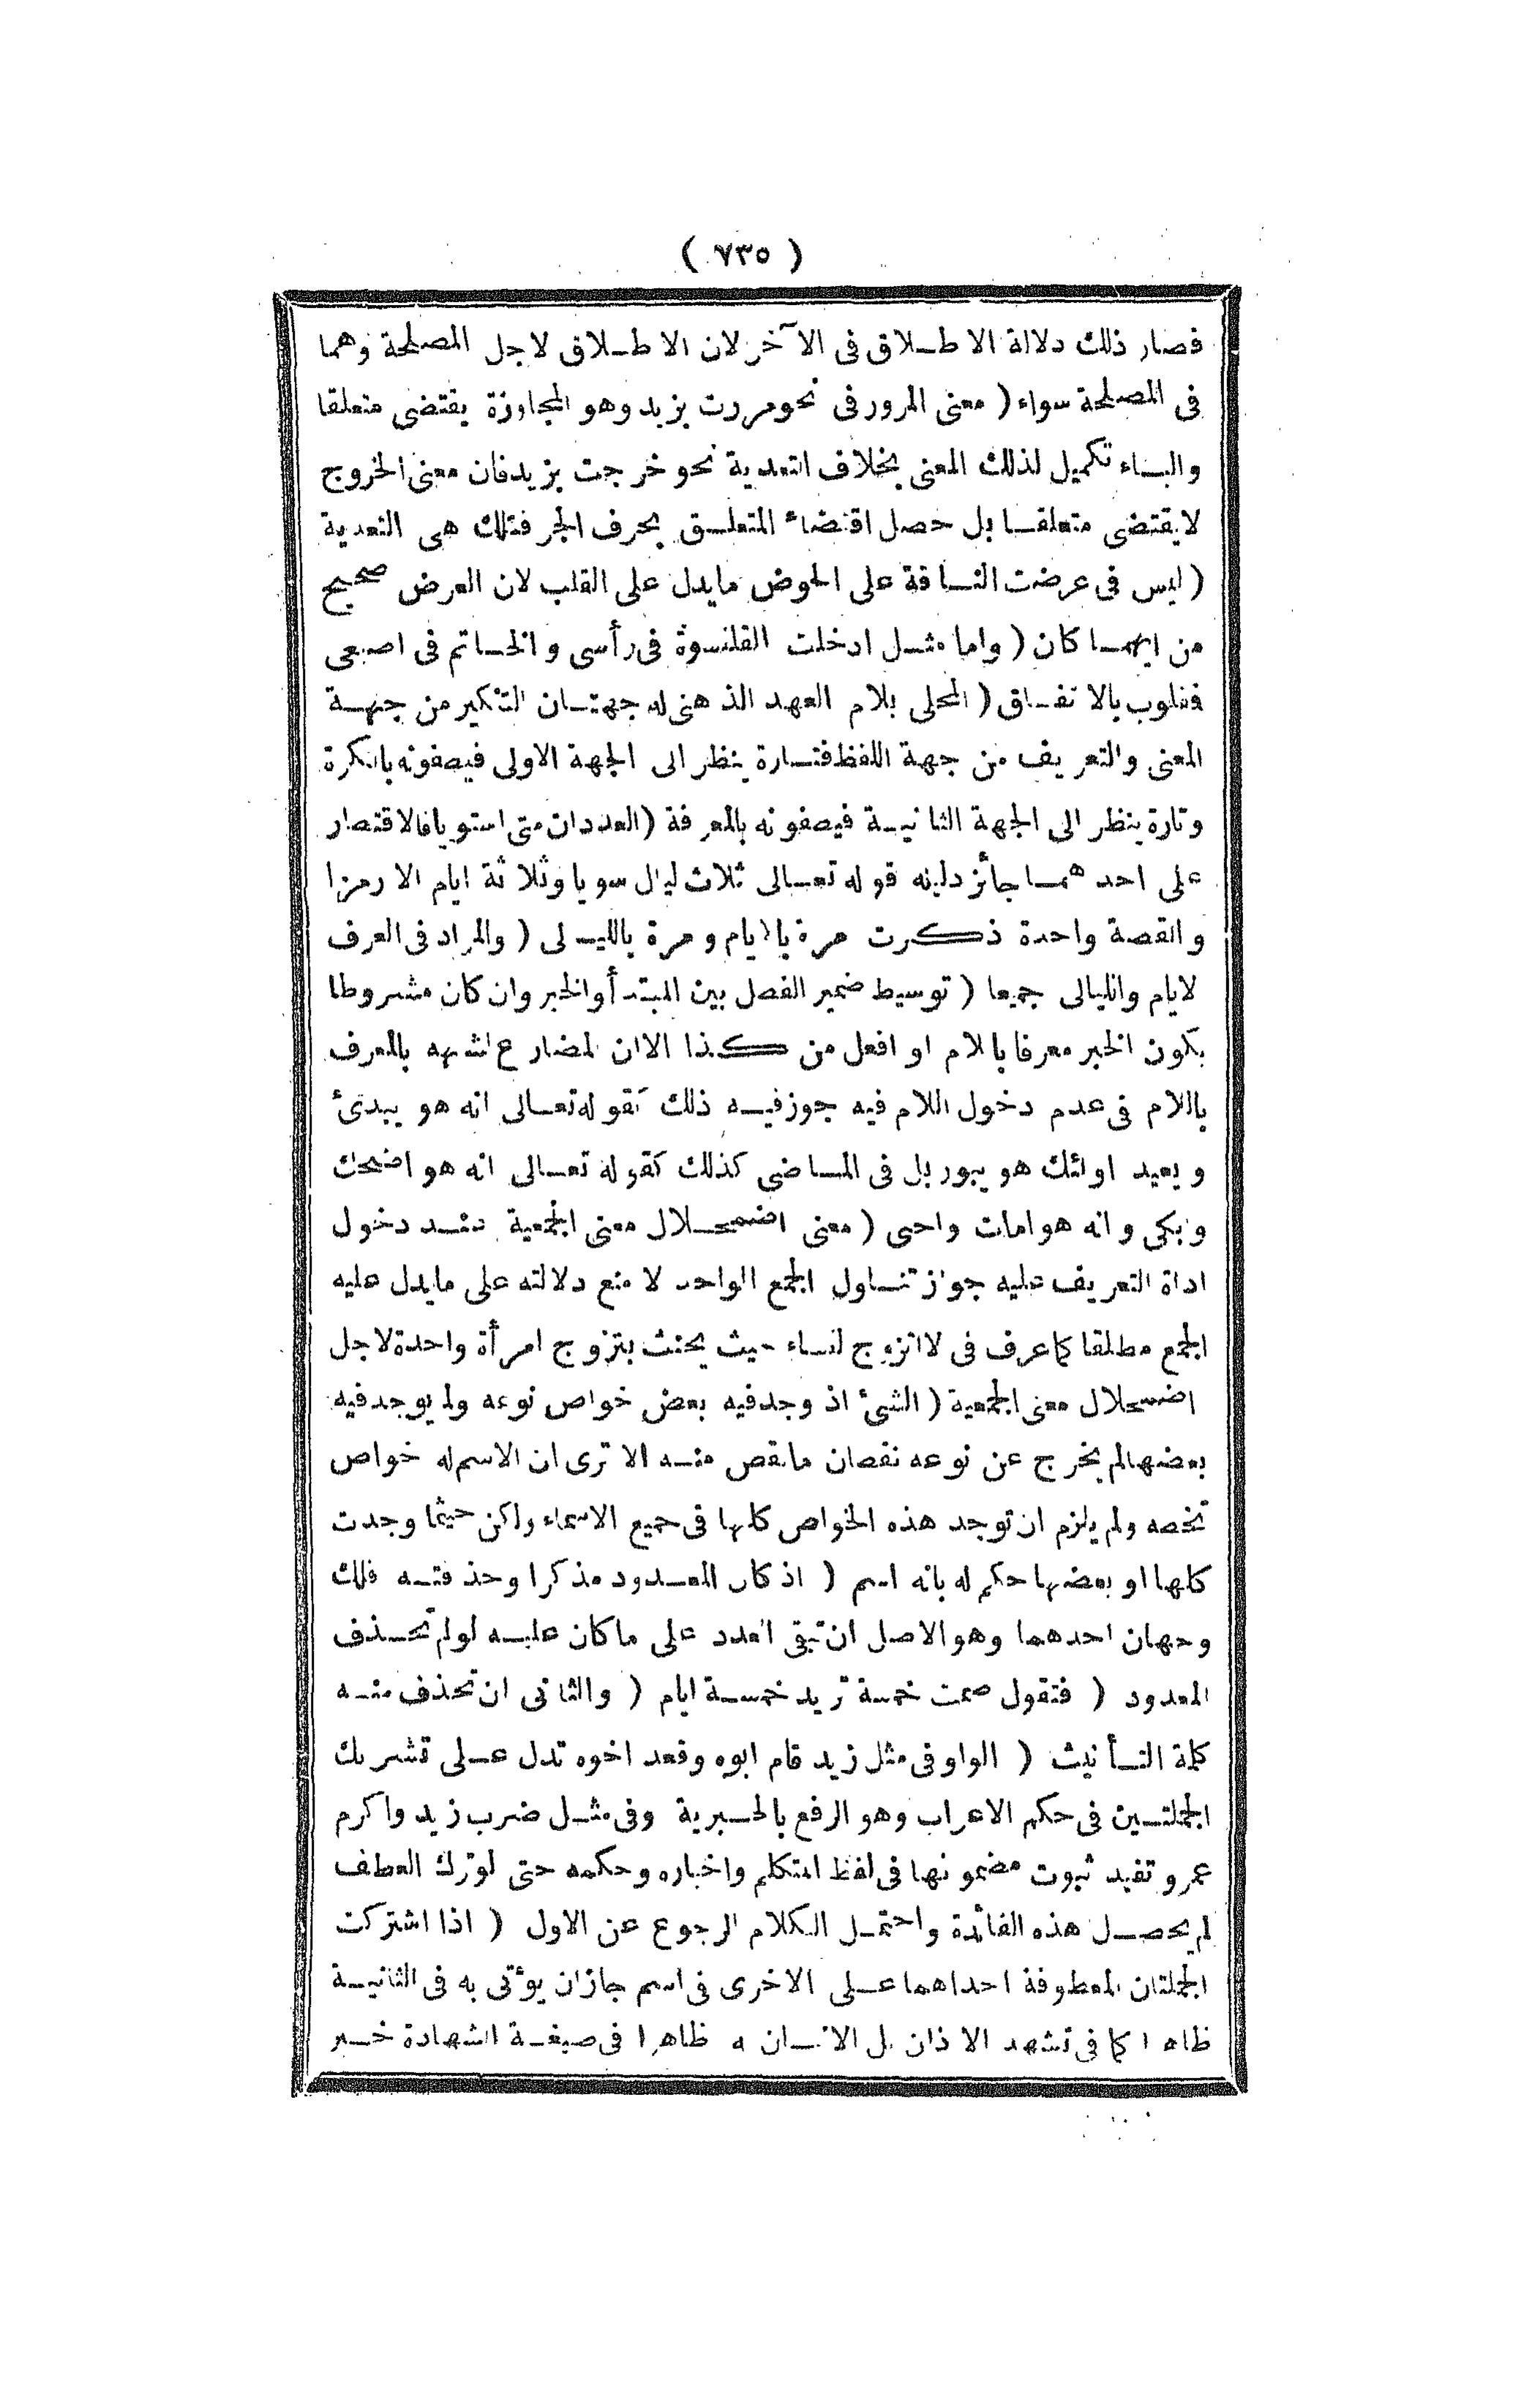 ( ٧٣٥ )
فصار ذلك دلالة الاطلاق فى الآخر لان الاطلاق لاجل المصلحة وهما
فى المصلحة سواء ( معنى المرور فى نحو مررت بزيد وهو المجاوزة يقتضى متعلقا
والباء تكميل لذلك المعنى بخلاف التعدية نحو خرجت بزيد فان معنى الخروج
لا يقتضى متعلقا بل حصل اقتضاء المتعلق بحرف الجر فتلك هى التعدية
( ليس فى عرضت الناقة على الحوض مايدل على القلب لان العرض صحيح
من ايهما كان ( واما مثل ادخلت القلنسوة فى رأسى والخاتم فى اصبعى
فقلوب بالاتفاق ( المحلى بلام العهد الذهنى له جهتان التنكير من جهة
المعنى والتعريف من جهة اللفظ فتارة ينظر الى الجهة الاولى فيصفونه بالنكرة
وتارة ينظر الى الجهة الثانية فيصفونه بالمعرفة ( العددان متى استويا فالاقتصار
على احدهما جائز دليله قوله تعالى ثلاث ليال سويا وثلاثة ايام الا رمزا
والقصة واحدة ذكرت مرة بالايام ومرة بالليالى ( والمراد فى العرف
لايام والليالى جميعا ( توسيط ضمير الفصل بين المبتدأ والخبر وان كان مشروطا
بكون الخبر معرفا باللام او افعل من كذا الا ان المضارع لشبهه بالمعرف
باللام فى عدم دخول اللام فيه جوز فيه ذلك كقوله تعالى انه هو يبدئ
ويعيد اولئك هو يبور بل فى الماضى كذلك كقوله تعالى انه هو اضحك
وابكى وانه هو امات واحيى ( معنى اضمحلال معنى الجمعية عند دخول
اداة التعريف عليه جواز تناول الجمع الواحد لا منع دلالته على مايدل عليه
الجمع مطلقا كما عرف فى لا اتزوج لنساء حيث يحنث بتزوج امرأة واحدة لاجل
اضمحلال معنى الجمعية ( الشئ اذ وجد فيه بعض خواص نوعه ولم يوجد فيه
بعضها لم يخرج عن نوعه نقصان مانقص منه الا ترى ان الاسم له خواص
تخصه ولم يلزم ان توجد هذه الخواص كلها فى جميع الاسماء ولكن حيثما وجدت
كلها او بعضها حكم له بانه اسم ( اذ كان المعدود مذكرا وحذفته فلك
وجهان احدهما وهو الاصل ان تبقى العدد على ما كان عليه لو لم تحذف
المعدود ( فتقول صمت خمسة تريد خمسة ايام ( والثانى ان تحذف منه
كلمة التأنيث ( الواو فى مثل زيد قام ابوه وقعد اخوه تدل على تشريك
الجملتين فى حكم الاعراب وهو الرفع بالخبرية وفى مثل ضرب زيد واكرم
عمرو تفيد ثبوت مضمونها فى لفظ المتكلم واخباره وحكمه حتى لو ترك العطف
لم يحصل هذه الفائدة واحتمل الكلام الرجوع عن الاول ( اذا اشتركت
الجملتان المعطوفة احداهما على الاخرى فى اسم جاز ان يؤتى به فى الثانية
ظاهرا كما فى تشهد الاذان بل الاتيان به ظاهرا فى صيغة الشهادة خير